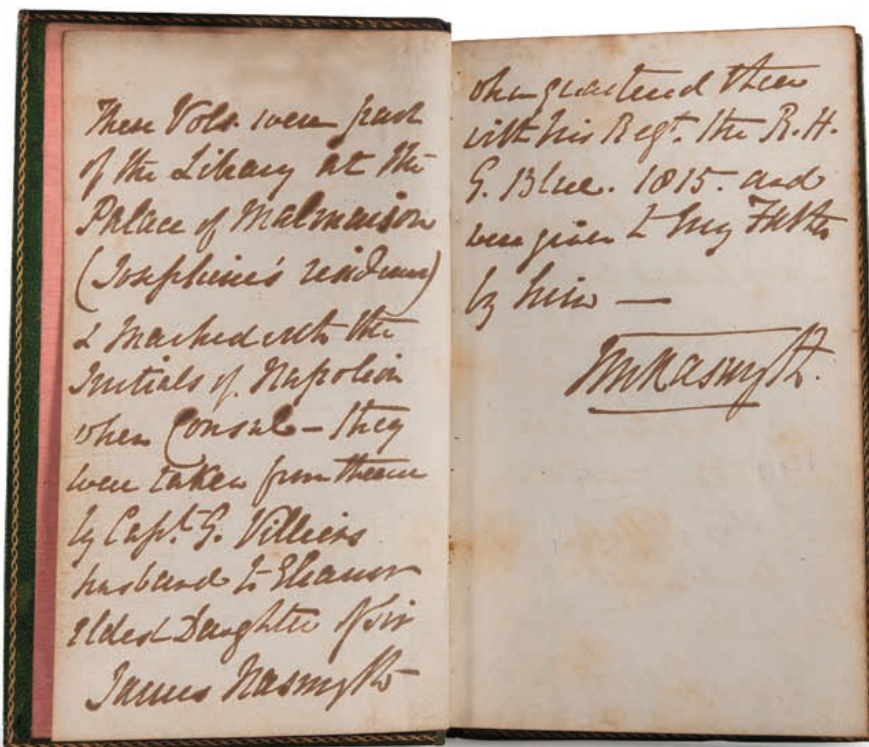 These Vols. were part
of the Library at the
Palace of Malmaison
(Josephine's residence)
& marked with the
Initials of Napoleon
when Consul – they
were taken from thence
by Capt. G. Villiers
husband to Eleanor
eldest Daughter of Sir
James Nasmyth
when quartered there
with his Regt. the R. H.
G. Blue. 1815. and
were given to my Father
by him —
Nasmyth.